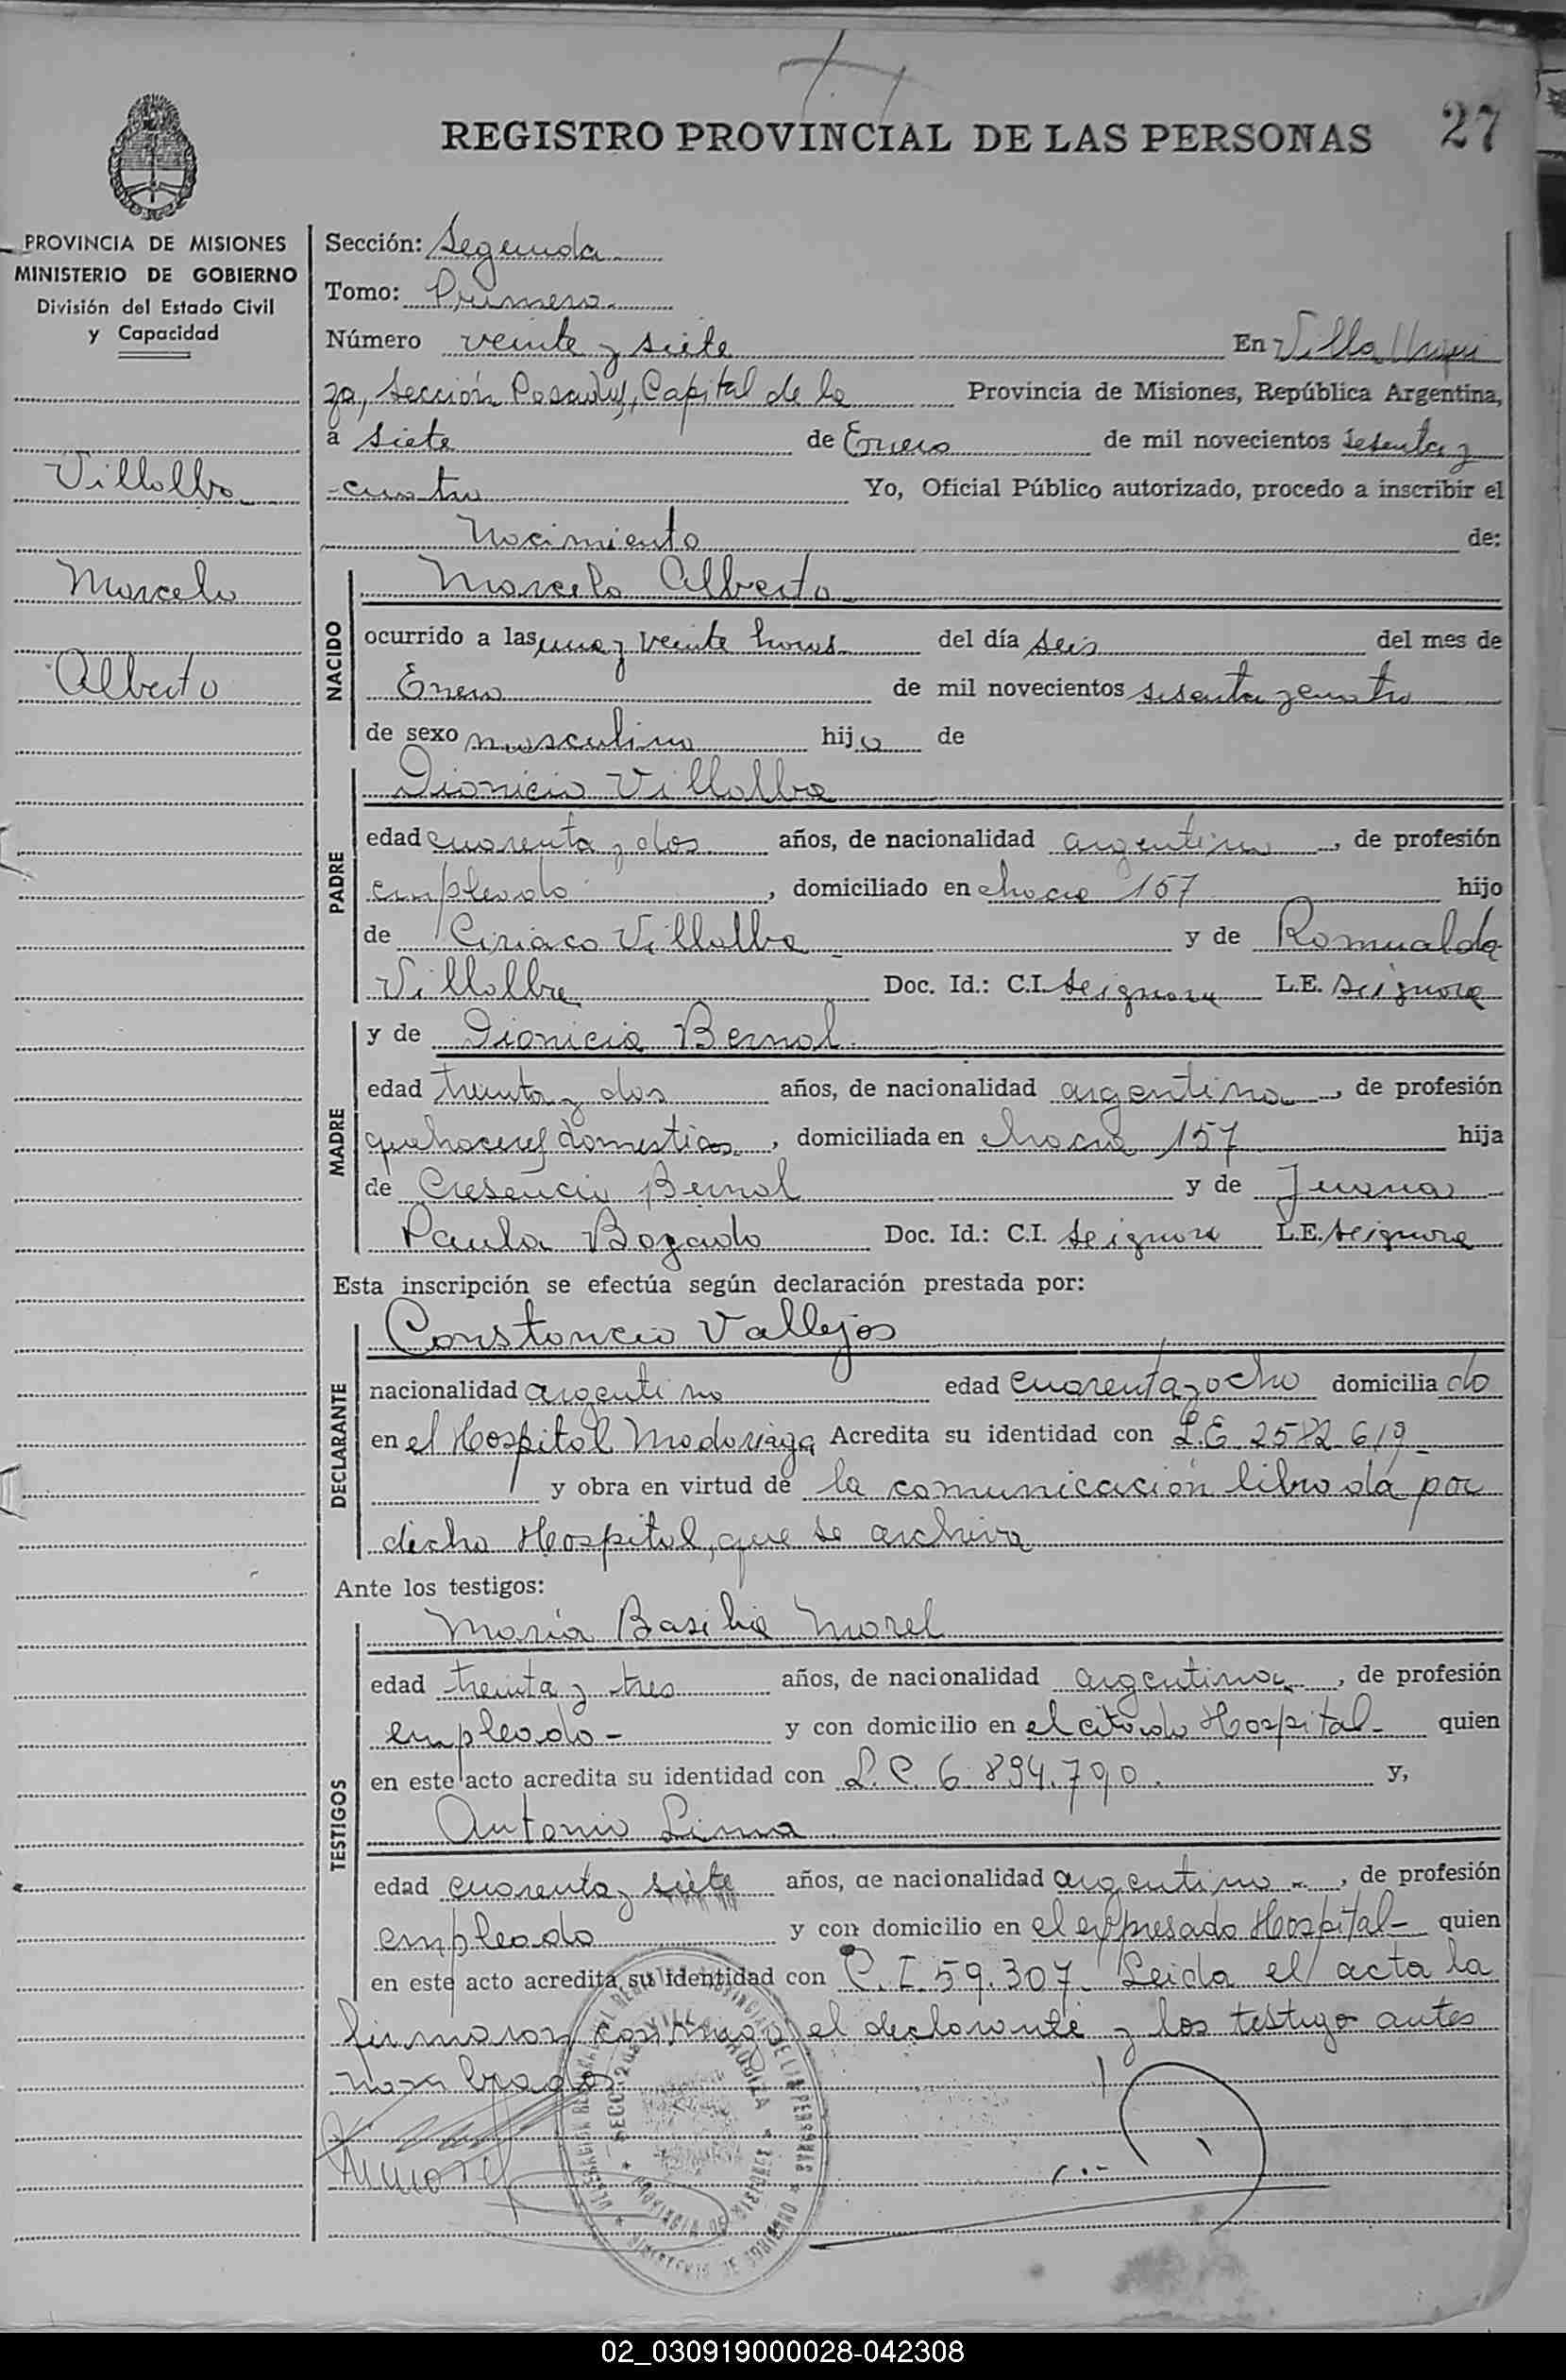 27
REGISTRO PROVINCIAL DE LAS PERSONAS
PROVINCIA DE MISIONES
MINISTERIO DE GOBIERNO
División del Estado Civil
y Capacidad
Villalba
Marcelo
Alberto
Sección: Segunda
Tomo: Primero
Número veinte y siete En Villa Urqui
za, Sección Posadas, Capital de la Provincia de Misiones, República Argentina,
a siete de Enero de mil novecientos sesenta y
cuatro Yo, Oficial Público autorizado, procedo a inscribir el
Nacimiento de:
NACIDO
Marcelo Alberto
ocurrido a las una y veinte horas del día seis del mes de
Enero de mil novecientos sesenta y cuatro
de sexo masculino hijo de
PADRE
Dionicio Villalba
edad cuarenta y dos años, de nacionalidad argentino, de profesión
empleado, domiciliado en chacra 157 hijo
de Ciriaco Villalba y de Romualda
Villalba Doc. Id.: C.I. se ignora L.E. se ignora
MADRE
y de Dionicia Bernal
edad treinta y dos años, de nacionalidad argentina, de profesión
quehaceres domesticos, domiciliada en chacra 157 hija
de Cresencio Bernal y de Juana
Paula Bogado Doc. Id.: C.I. se ignora L.E. se ignora
Esta inscripción se efectúa según declaración prestada por:
DECLARANTE
Constancio Vallejos
nacionalidad argentino edad cuarenta y ocho domiciliado
en el Hospital Madariaga Acredita su identidad con L.E. 2582619
y obra en virtud de la comunicación librada por
dicho Hospital, que se archiva
Ante los testigos:
TESTIGOS
María Basilia Morel
edad treinta y tres años, de nacionalidad argentina, de profesión
empleada - y con domicilio en el citado Hospital - quien
en este acto acredita su identidad con L.C. 6.894.790. y,
Antonio Lima
edad cuarenta y siete años, de nacionalidad argentino, de profesión
empleado y con domicilio en el expresado Hospital - quien
en este acto acredita su identidad con C.I. 59.307. Leida el acta la
firmaron conmigo el declarante y los testigo antes
nombrados
02_030919000028-042308